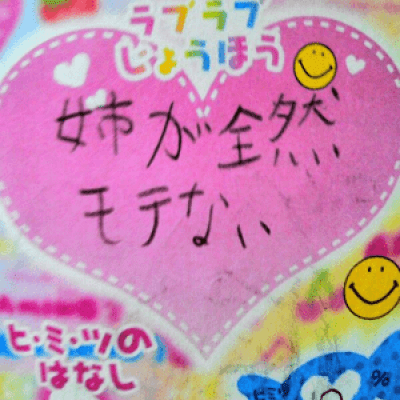 ラブラブ
じょうほう
姉が全然
モテない
ヒ・ミ・ツの
はなし
%